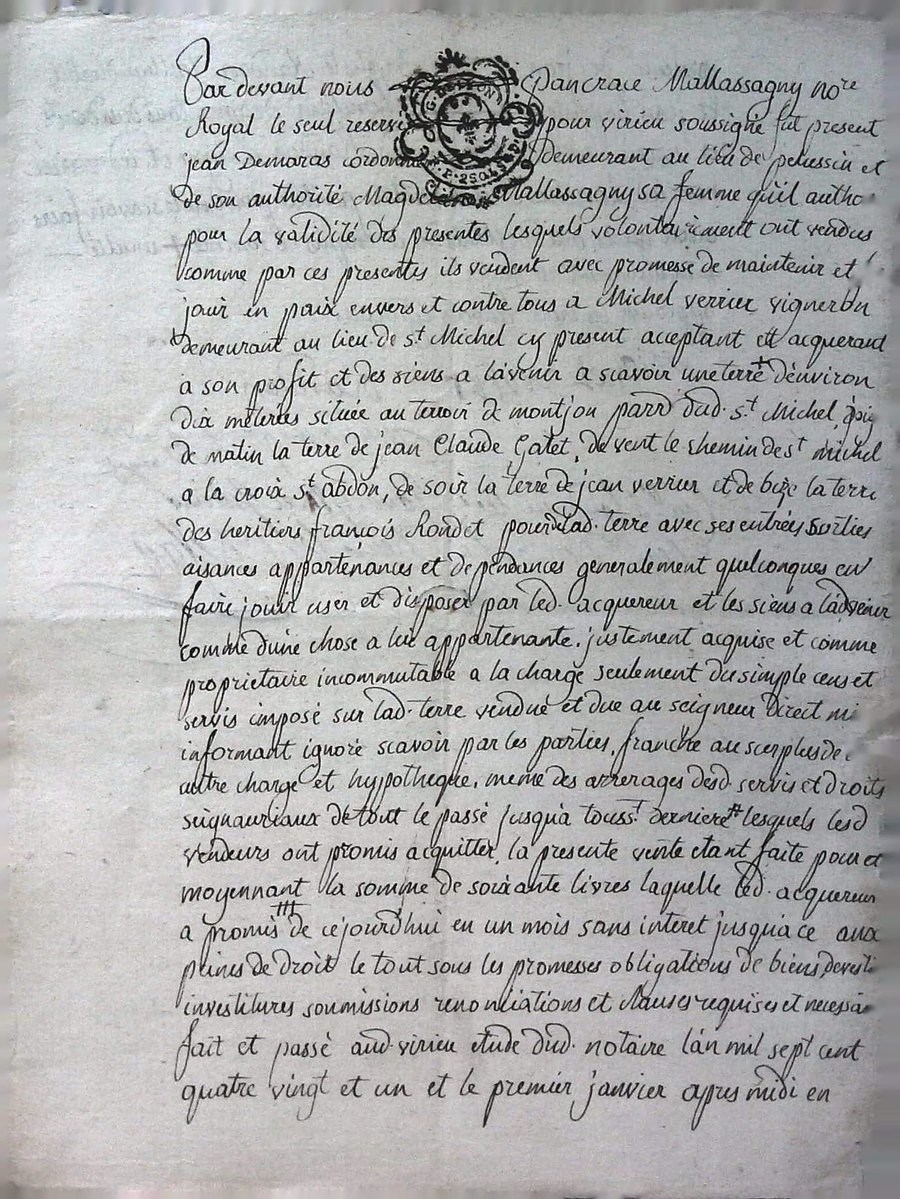 Pardevant nous Pancrace Mallassagny nore
Royal le seul reservé pour virieu soussigné fut present
jean Demaras cordonnier demeurant au lieu de pelussin et
de son authorité Magdel Mallassagny sa femme quil autho
pour la validité des presentes lesquels volontairement ont vendus
comme par ces presentes ils vendent avec promesse de maintenir et
jouir en paix envers et contre tous a Michel verrier vigneron
demeurant au lieu de st Michel cy present acceptant et acquerant
a son profit et des siens a lavenir a scavoir une terre denviron
dix méterées située au terroir de montjon parr dud. st Michel,
de matin la terre de jean Claude Gatet, de vent le chemin de st michel
a la croix st abdon, de soir la terre de jean verrier et de bize la terre
des heritiers françois Rondet pour lad. terre avec ses entrées sorties
aisances appartenances et dependances generalement quelconques en
faire jouir user et disposer par led. acquereur et les siens a ladvenir
comme dune chose a lui appartenante, justement acquise et comme
proprietaire incommutable a la charge seulement du simple cens et
servis imposé sur lad. terre vendue et due au seigneur direct ni
informant ignoré scavoir par les parties, franche au surplus de
autre charge et hypotheque, meme des arrerages desd. servis et droits
seignauriaux de tout le passé jusqua touss.t derniere # lesquels lesd
vendeurs ont promis acquitter, la presente vente etant faite pour et
moyennant la somme de soixante livres laquelle led. acquereur
a promis de ce jourdhui en un mois sans interet jusqua ce aux
peines de droit le tout sous les promesses obligations de biens, devesti
investitures soumissions renonciations et clauses requises et necessai
fait et passé aud. virieu etude dud. notaire lan mil sept cent
quatre vingt et un et le premier janvier apres midi en